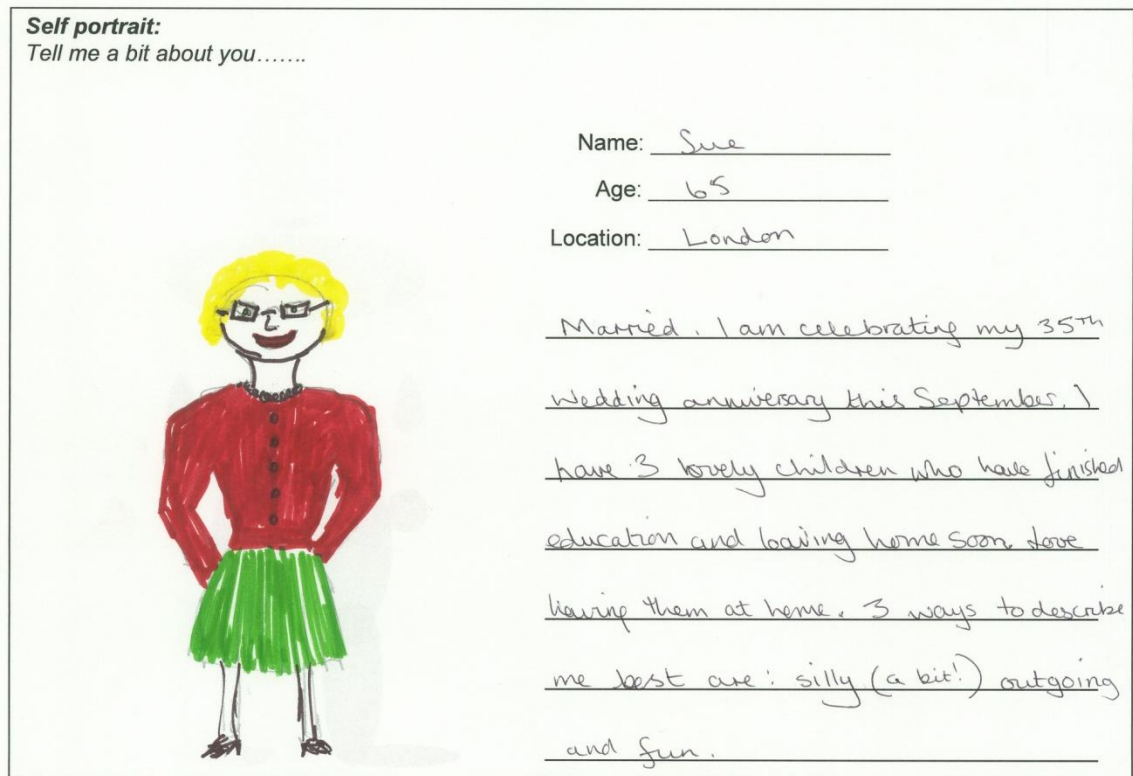 Self portrait:
Tell me a bit about you.......
Name: Sue
Age: 65
Location: London
Married. I am celebrating my 35TH
wedding anniversary this September. I
have 3 lovely children who have finished
education and leaving home soon. Love
having them at home. 3 ways to describe
me best are: silly (a bit!) outgoing
and fun.